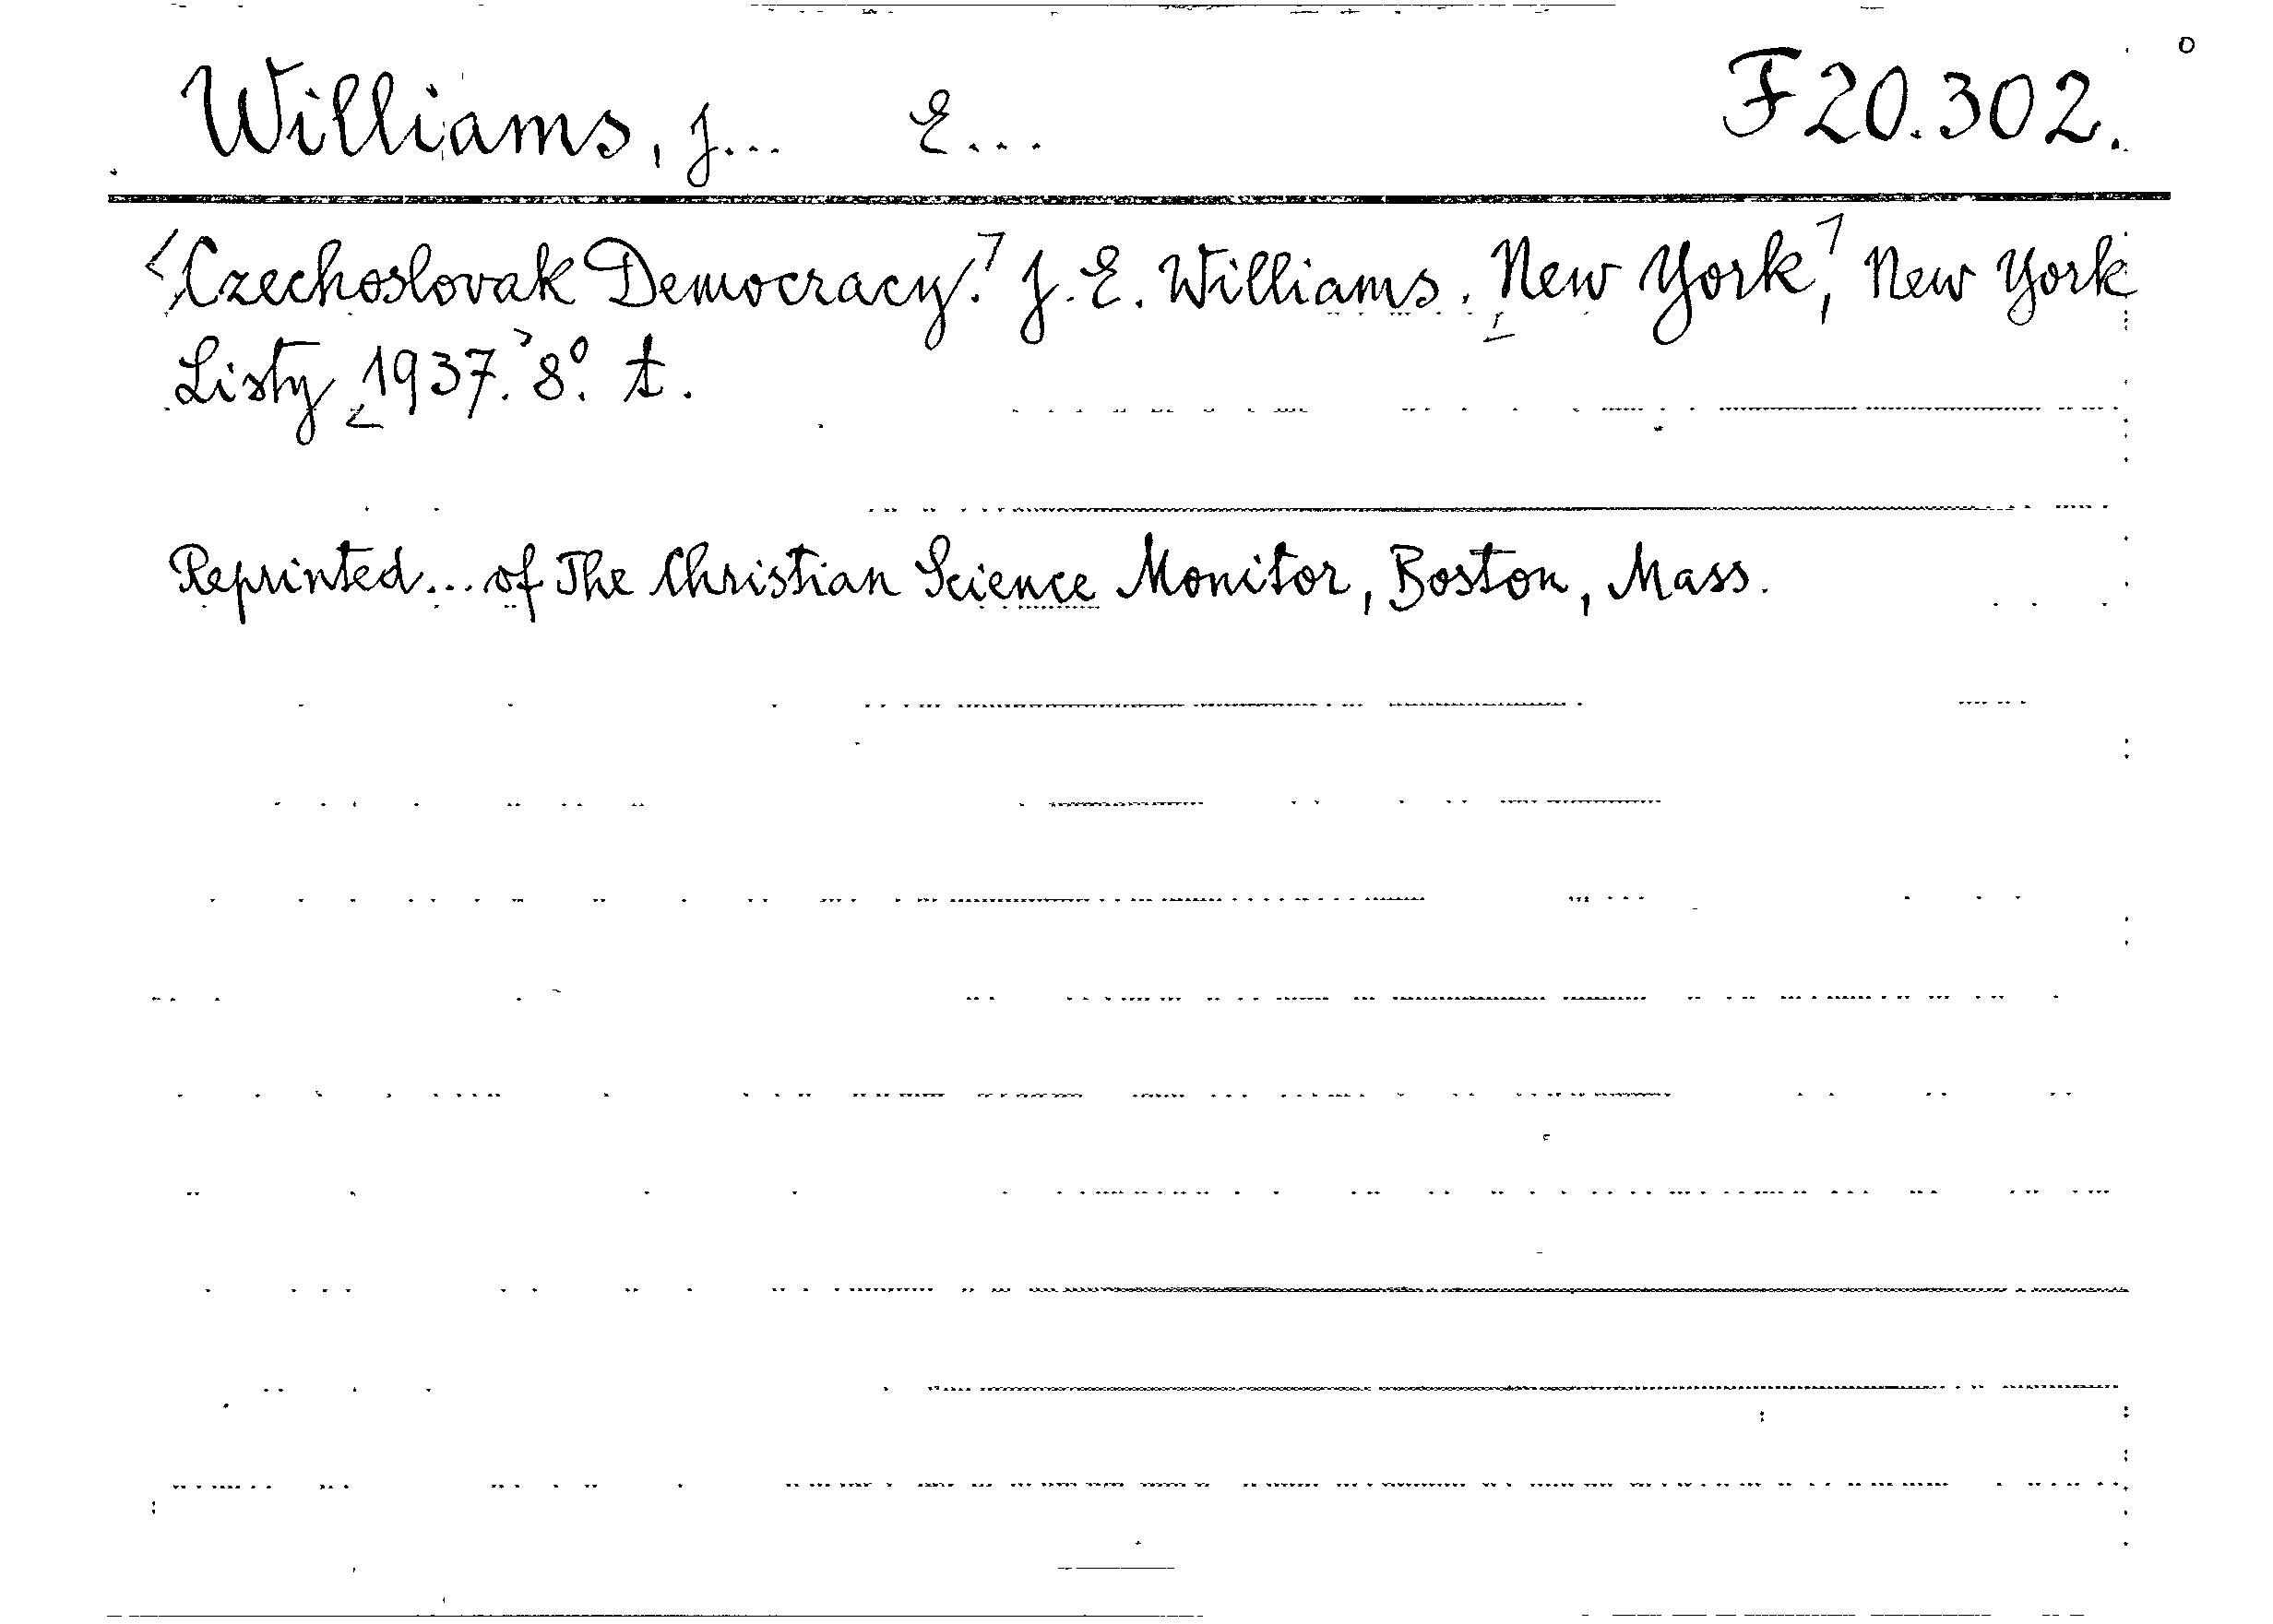 Williams, J... E... F 20.302.
<Czechoslovak Democracy.> J. E. Williams. <New York,> New York
Listy <1937.> 8º. t.
Reprinted... of The Christian Science Monitor, Boston, Mass.